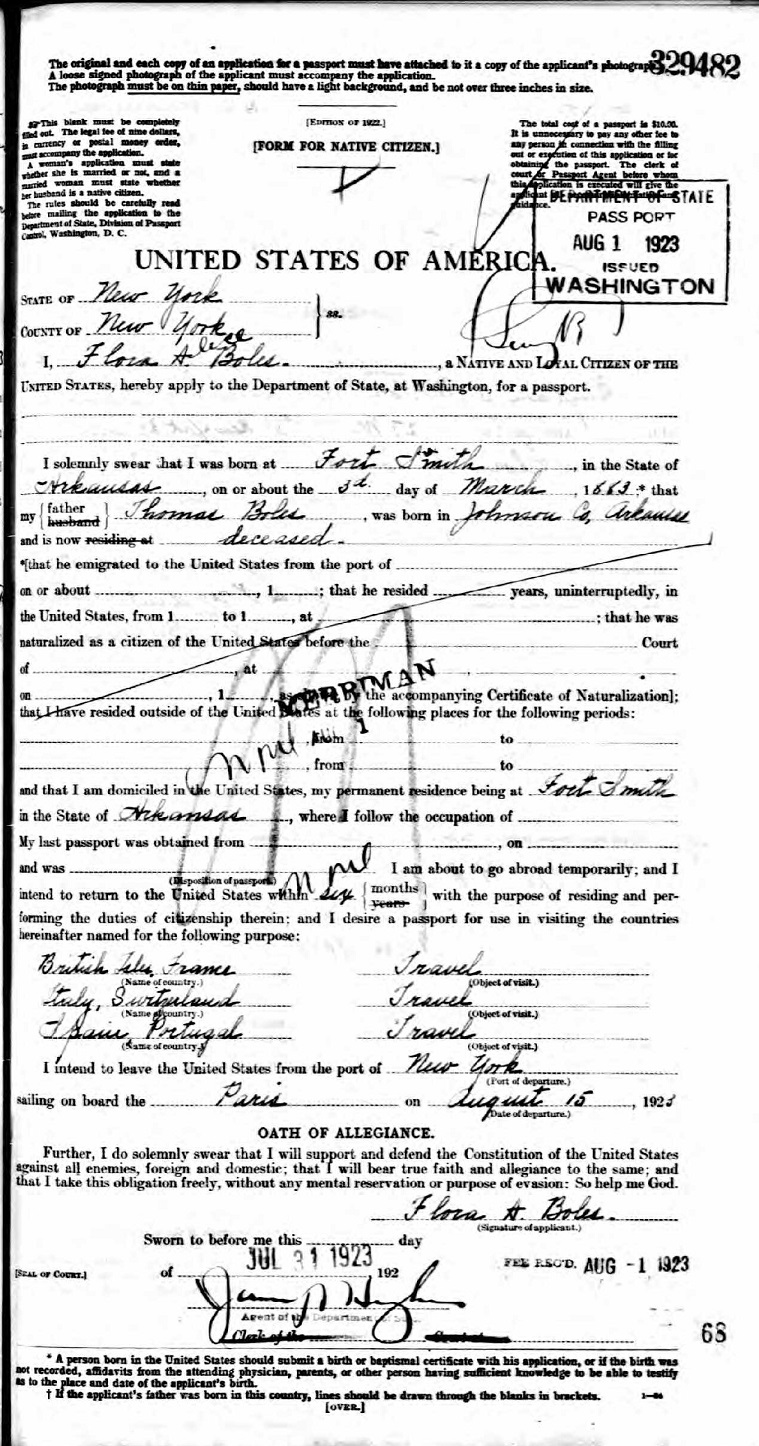 The original and each copy of an application for a passport must have attached to it a copy of the applicant's photograph.
A loose signed photograph of the applicant must accompany the application.
The photograph must be on thin paper, should have a light background, and be not over three inches in size.
329482
This blank must be completely
filled out. The legal fee of nine dollars,
in currency or postal money order,
must accompany the application.
A woman's application must state
whether she is married or not, and a
married woman must state whether
her husband is a native citizen.
The rules should be carefully read
before mailing the application to the
Department of State, Division of Passport
Control, Washington, D. C.
[EDITION OF 1922.]
[FORM FOR NATIVE CITIZEN.]
The total cost of a passport is $10.00.
It is unnecessary to pay any other fee to
any person in connection with the filling
out or execution of this application or for
obtaining the passport. The clerk of
court or Passport Agent before whom
this application is executed will give the
applicant
guidance.
DEPARTMENT OF STATE
PASSPORT
AUG 1 1923
ISSUED
WASHINGTON
UNITED STATES OF AMERICA.
STATE OF New York
COUNTY OF New York
ss.
I, Flora A. Boles, a NATIVE AND LOYAL CITIZEN OF THE
UNITED STATES, hereby apply to the Department of State, at Washington, for a passport.
I solemnly swear that I was born at Fort Smith, in the State of
Arkansas, on or about the 3d. day of March, 1883.* that
my {father husband} Thomas Boles, was born in Johnson Co, Arkansas
and is now residing at deceased.
*[that he emigrated to the United States from the port of
on or about , 1 ; that he resided years, uninterruptedly, in
the United States, from 1 to 1 , at ; that he was
naturalized as a citizen of the United States before the Court
of , at
on , 1 , as by the accompanying Certificate of Naturalization];
MERRIMAN
that I have resided outside of the United States at the following places for the following periods:
, from to
, from to
and that I am domiciled in the United States, my permanent residence being at Fort Smith
in the State of Arkansas, where I follow the occupation of
My last passport was obtained from , on
and was (Disposition of passport) I am about to go abroad temporarily; and I
intend to return to the United States within six {months years} with the purpose of residing and per-
forming the duties of citizenship therein; and I desire a passport for use in visiting the countries
hereinafter named for the following purpose:
British Isles, France Travel
(Name of country.) (Object of visit.)
Italy, Switzerland Travel
(Name of country.) (Object of visit.)
Spain, Portugal Travel
(Name of country.) (Object of visit.)
I intend to leave the United States from the port of New York
(Port of departure.)
sailing on board the Paris on August 15, 1923
(Date of departure.)
OATH OF ALLEGIANCE.
Further, I do solemnly swear that I will support and defend the Constitution of the United States
against all enemies, foreign and domestic; that I will bear true faith and allegiance to the same; and
that I take this obligation freely, without any mental reservation or purpose of evasion: So help me God.
Flora A. Boles.
(Signature of applicant.)
Sworn to before me this day
JUL 31 1923
[SEAL OF COURT.] of 192
FEE REC'D. AUG -1 1923
Agent of the Department of
Clerk of the
68
* A person born in the United States should submit a birth or baptismal certificate with his application, or if the birth was
not recorded, affidavits from the attending physician, parents, or other person having sufficient knowledge to be able to testify
as to the place and date of the applicant's birth.
† If the applicant's father was born in this country, lines should be drawn through the blanks in brackets.
[OVER.]